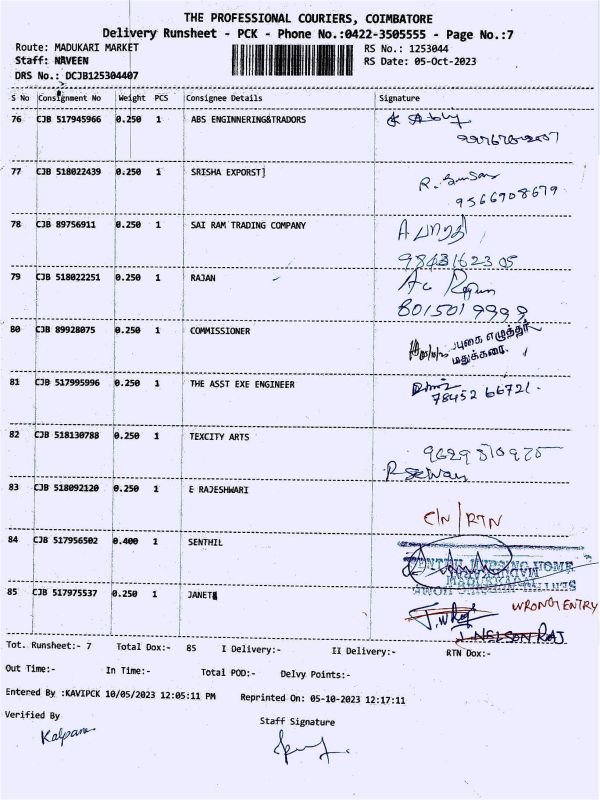 THE PROFESSIONAL COURIERS, COIMBATORE
Delivery Runsheet - PCK - Phone No.:0422-3505555 - Page No.:7
Route: MADUKARI MARKET RS No.: 1253044
Staff: NAVEEN RS Date: 05-Oct-2023
DRS No.: DCJB125304407
S No Consignment No Weight PCS Consignee Details Signature
76 CJB 517945966 0.250 1 ABS ENGINNERING&TRADORS
77 CJB 518022439 0.250 1 SRISHA EXPORST]
9566908679
78 CJB 89756911 0.250 1 SAI RAM TRADING COMPANY
9843162305
79 CJB 518022251 0.250 1 RAJAN
8015019999
80 CJB 89928075 0.250 1 COMMISSIONER
புகை எழுத்தர்
மதுக்கரை.
81 CJB 517995996 0.250 1 THE ASST EXE ENGINEER
78452 66721.
82 CJB 518130788 0.250 1 TEXCITY ARTS
83 CJB 518092120 0.250 1 E RAJESHWARI
C/N / RTN
84 CJB 517956502 0.400 1 SENTHIL
85 CJB 517975537 0.250 1 JANET
WRONG ENTRY
J. NELSON RAJ
Tot. Runsheet:- 7 Total Dox:- 85 I Delivery:- II Delivery:- RTN Dox:-
Out Time:- In Time:- Total POD:- Delvy Points:-
Entered By :KAVIPCK 10/05/2023 12:05:11 PM Reprinted On: 05-10-2023 12:17:11
Verified By Staff Signature
Kalpana